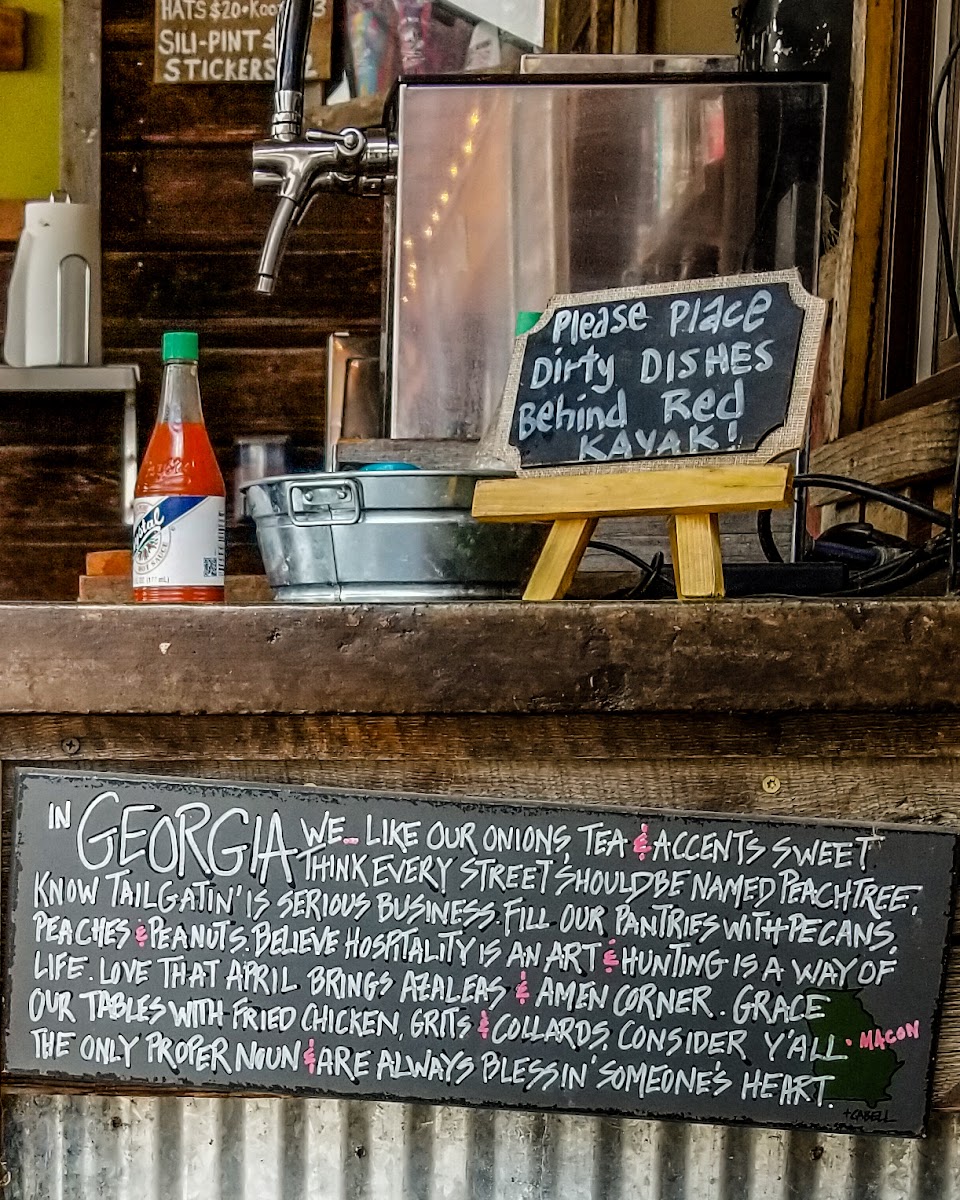 HATS $20 •
SILI-PINT $
STICKERS
Please Place
Dirty DISHES
Behind Red
KAYAK!
HOT SAUCE
IN GEORGIA WE... LIKE OUR ONIONS, TEA & ACCENTS SWEET.
THINK EVERY STREET SHOULD BE NAMED PEACHTREE.
KNOW TAILGATIN' IS SERIOUS BUSINESS. FILL OUR PANTRIES WITH PECANS,
PEACHES & PEANUTS. BELIEVE HOSPITALITY IS AN ART & HUNTING IS A WAY OF
LIFE. LOVE THAT APRIL BRINGS AZALEAS & AMEN CORNER. GRACE
OUR TABLES WITH FRIED CHICKEN, GRITS & COLLARDS. CONSIDER Y'ALL
• MACON
THE ONLY PROPER NOUN & ARE ALWAYS BLESSIN' SOMEONE'S HEART.
+CABELL